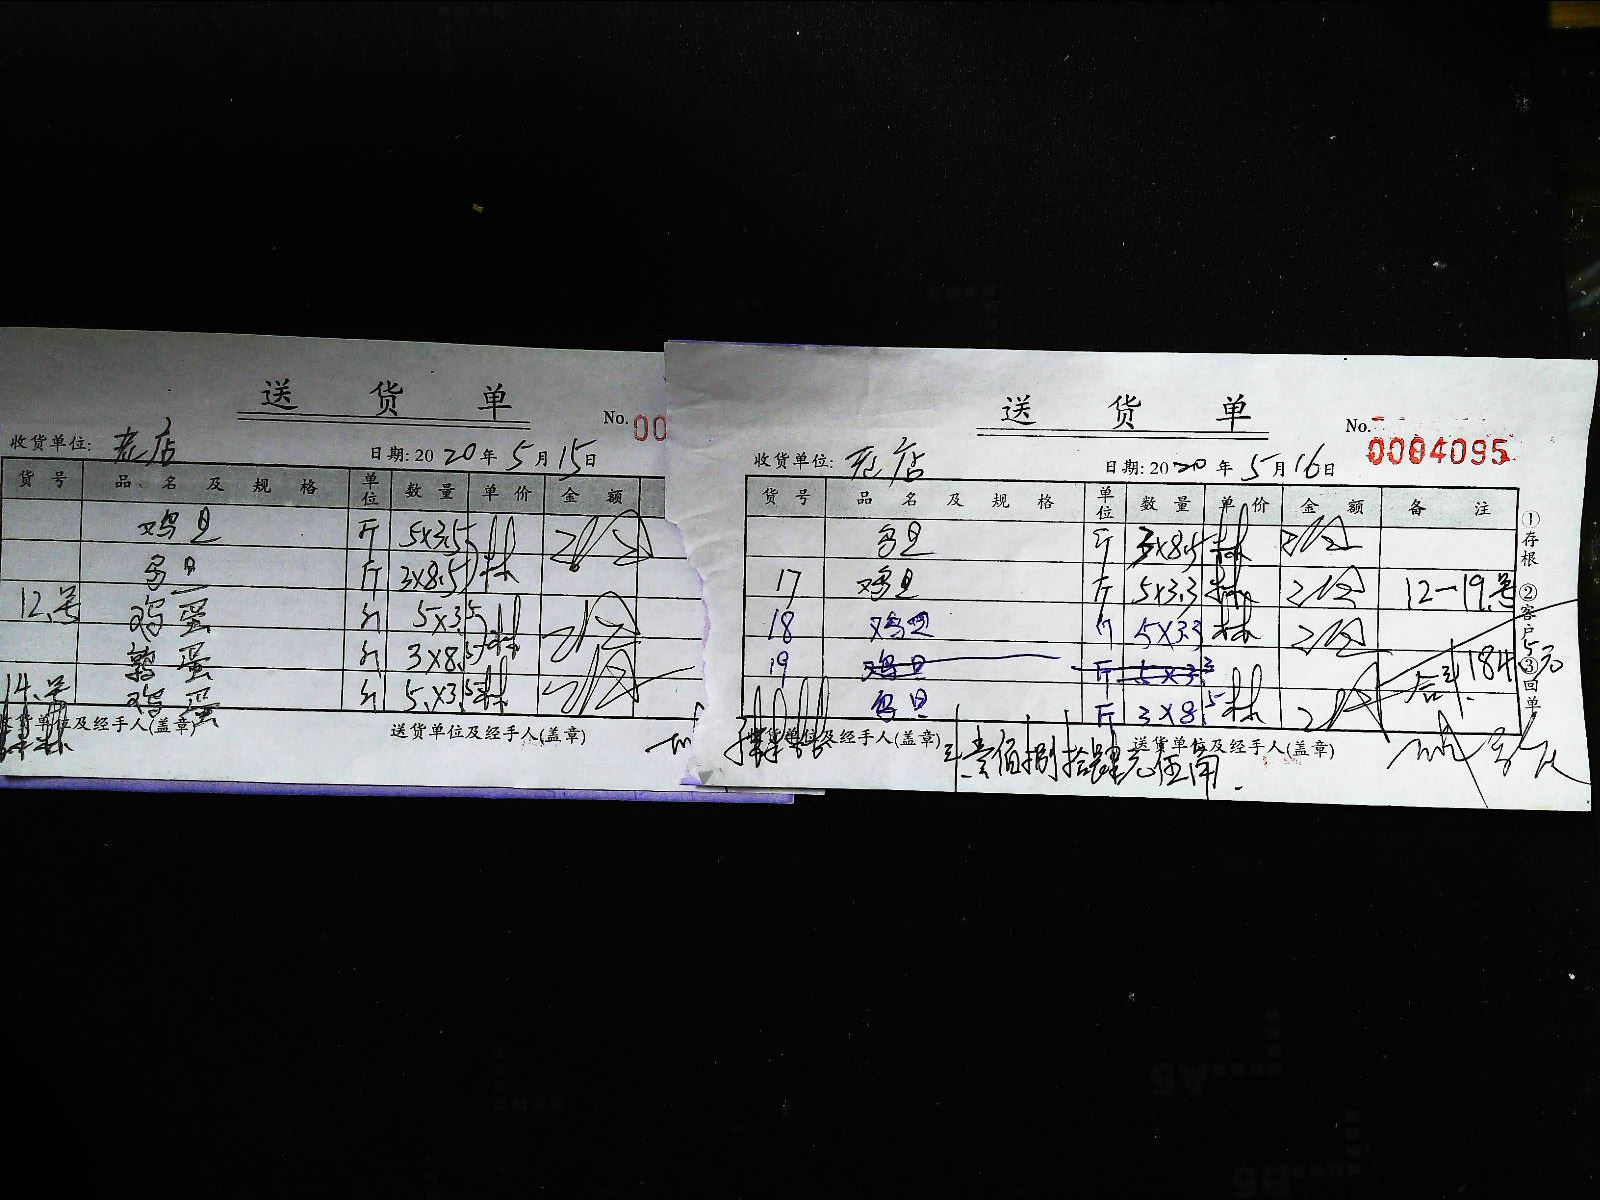 送 货 单
No. 00
收货单位: 老店 日期: 2020年5月15日
货号 品、名 及 规 格 单位 数量 单价 金额
鸡旦 斤 5×3.5
旦 斤 3×8.5
12号 鸡蛋 斤 5×3.5
鹑蛋 斤 3×8.5
14号 鸡蛋 斤 5×3.5
收货单位及经手人(盖章) 送货单位及经手人(盖章)
送 货 单
No. 0004095
收货单位: 老店 日期: 2020年5月16日
货号 品 名 及 规 格 单位 数量 单价 金额 备注
旦 斤 3×8.5
17 鸡旦 斤 5×3.3 12-19号
18 鸡旦 斤 5×3.3
19 鸡旦 斤 5×3.3 合计 184.5元
旦 斤 3×8.5
收货单位及经手人(盖章) 送货单位及经手人(盖章)
壹佰捌拾肆元伍角
①存根 ②客户 ③回单